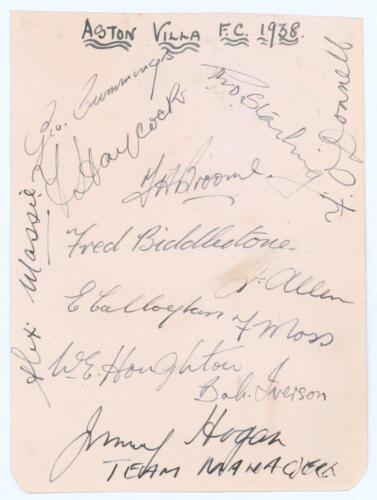 ASTON VILLA F.C. 1938.
Geo. Cummings
Tho. Starling
F. O'Donnell
F Haycock
Alex Massie
F H Broome.
Fred Biddlestone.
J. Allen
E Callaghan
F Moss
W. E. Houghton
Bob. Iverson
Jimmy Hogan
TEAM MANAGER